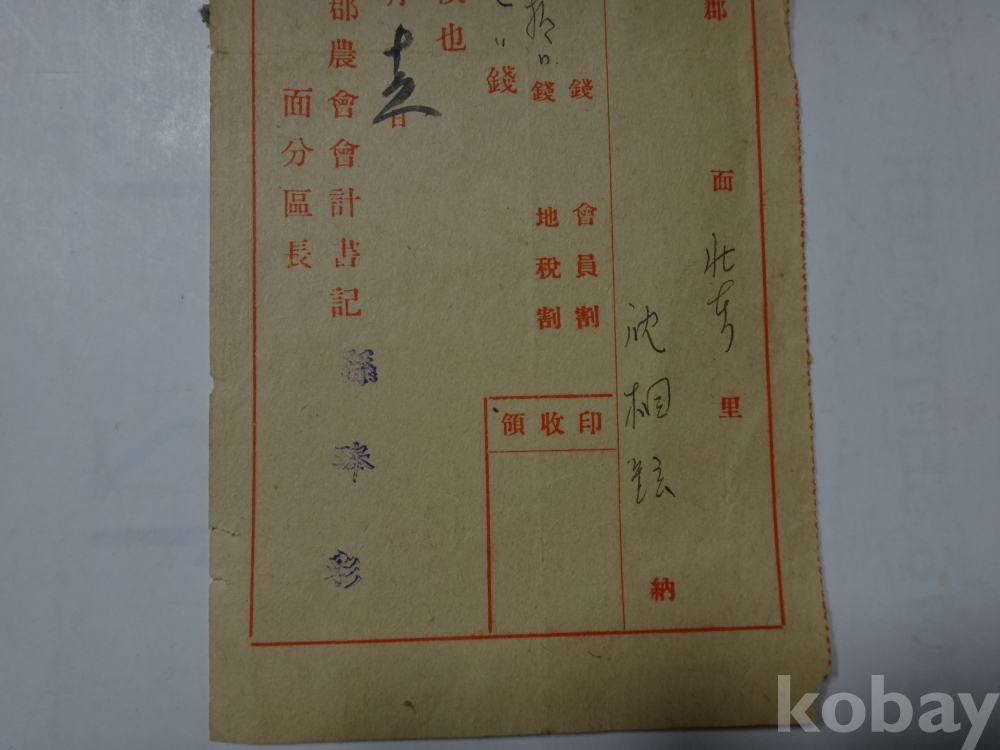 郡 面 里
沈相鉉 納
錢 會員割
拾 錢 地稅割
錢
領收印
也
十五日
郡農會會計書記 孫琫彩
面分區長
kobay